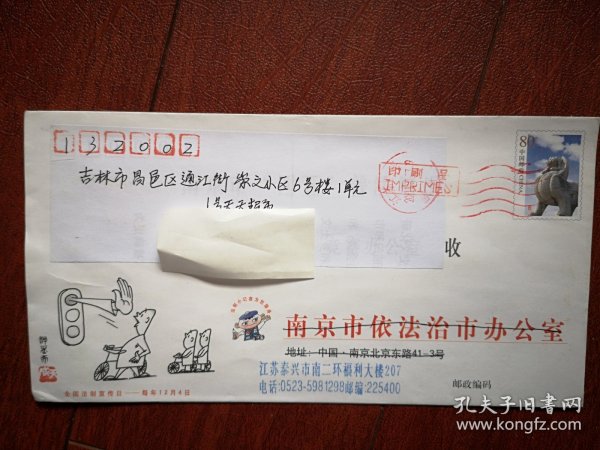 132002
吉林市昌邑区通江街崇文小区6号楼1单元
印刷品
IMPRIMES
8
中国邮政 CHINA
收
南京市依法治市办公室
地址：中国·南京北京东路41-3号
江苏泰兴市南二环福利大楼207
电话:0523-5981298邮编:225400
邮政编码
全国法制宣传日——每年12月4日
孔夫子旧书网
www.kongfz.com